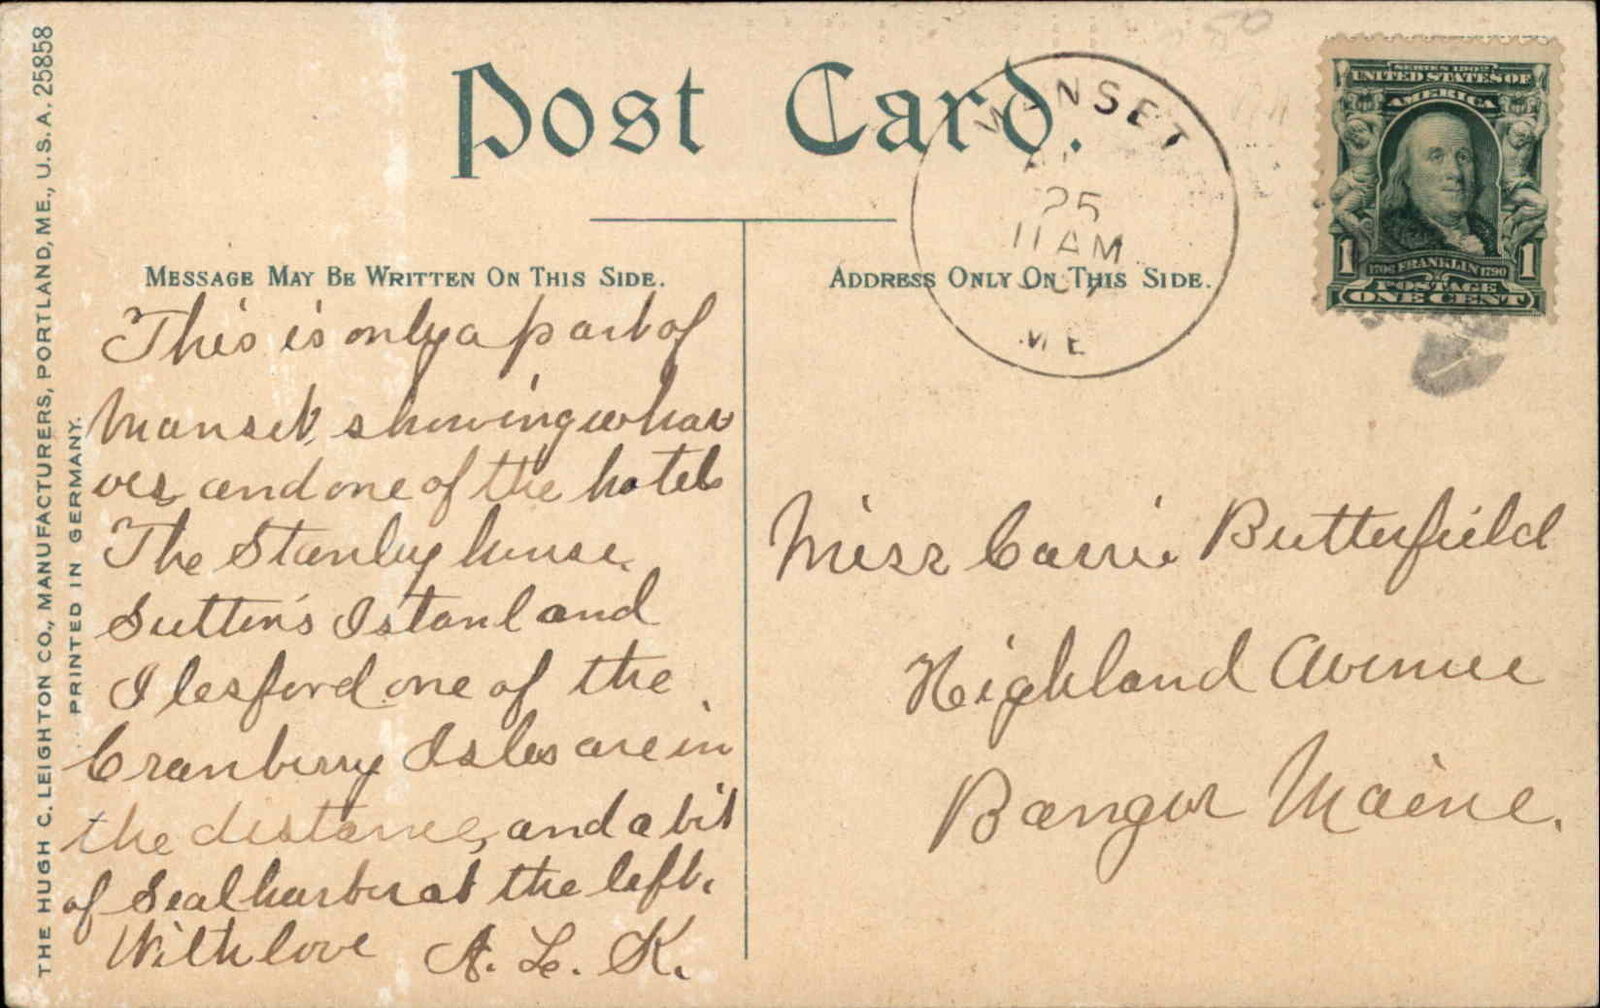 THE HUGH C. LEIGHTON CO., MANUFACTURERS, PORTLAND, ME., U.S.A. 25858
PRINTED IN GERMANY.
Post Card.
MANSET
25
11 AM
ME
SERIES 1902
UNITED STATES OF
AMERICA
1 1706 FRANKLIN 1790 1
POSTAGE
ONE CENT
MESSAGE MAY BE WRITTEN ON THIS SIDE.
This is only a part of
Manset, showing whar
ves and one of the hotels
The Stanley house.
Sutton's Island and
Ilesford one of the
Cranberry Isles are in
the distance, and a bit
of Seal harbor at the left.
With love A. L. K.
ADDRESS ONLY ON THIS SIDE.
Miss Carrie Butterfield
Highland Avenue
Bangor Maine.